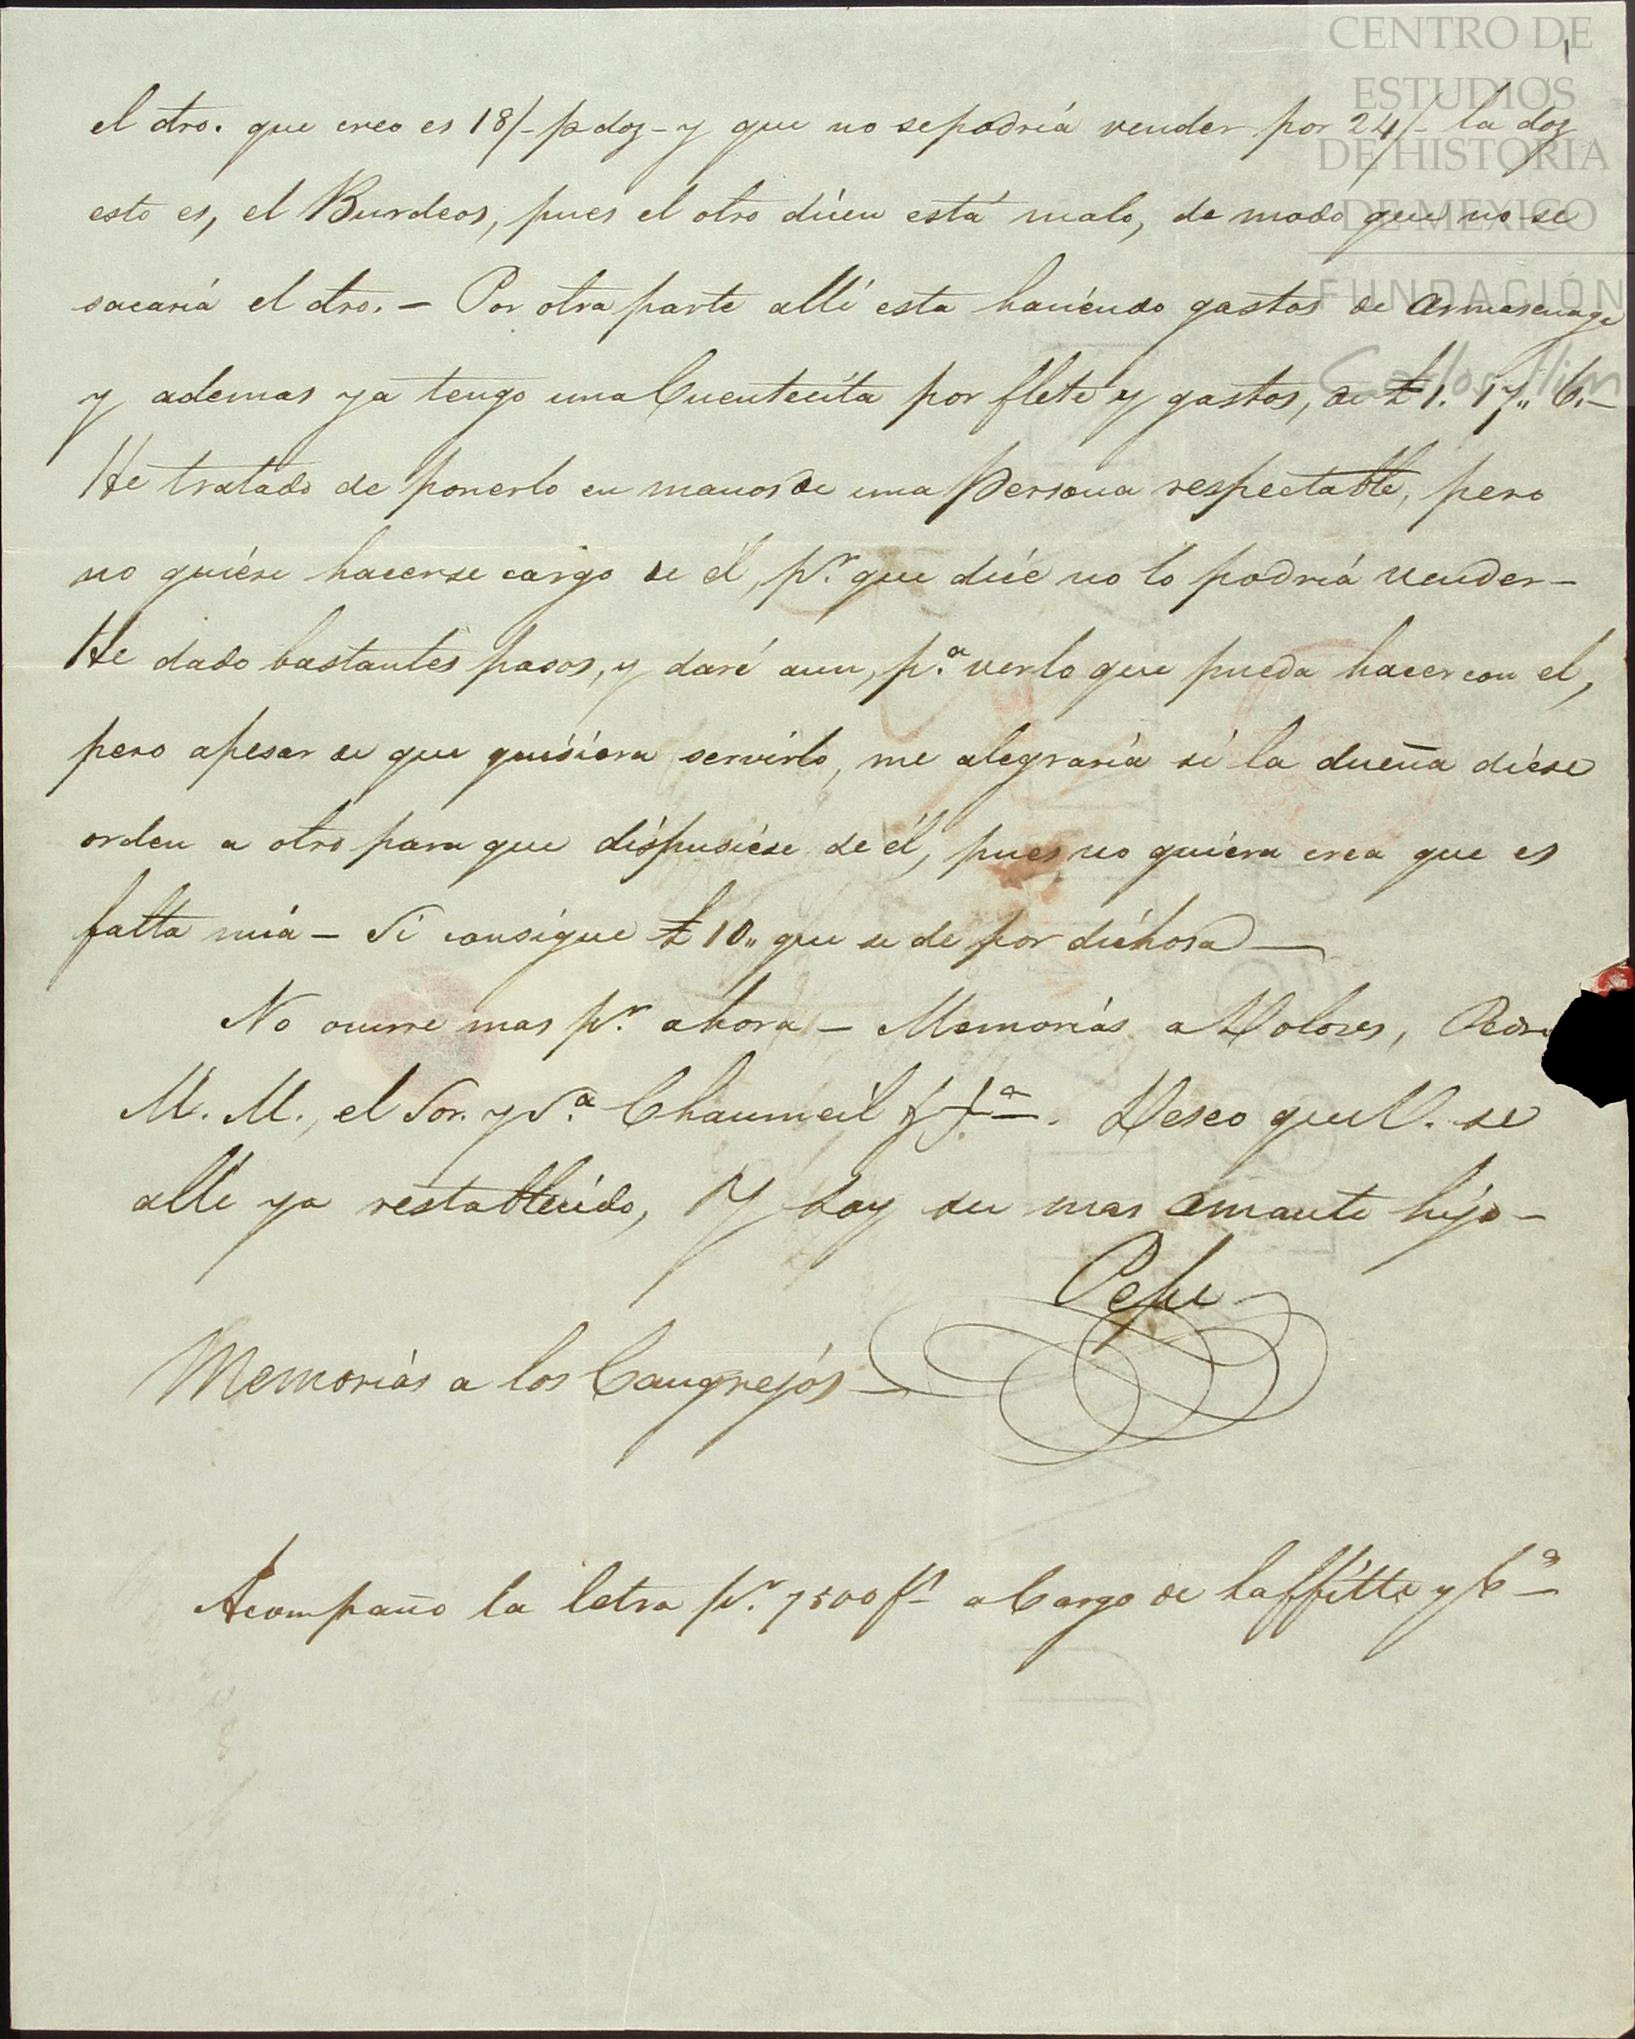 CENTRO DE
ESTUDIOS
DE HISTORIA
DE MEXICO
FUNDACIÓN
Carlos Slim
el dro. que creo es 18/- p doz - y que no se podría vender por 24/- la doz
esto es, el Burdeos, pues el otro dicen está malo, de modo que no se
sacaria el dro. - Por otra parte allí esta haciendo gastos de armasenage
y ademas ya tengo una Cuentecita por flete y gastos, de £ 1. 17,, 6.-
He tratado de ponerlo en manos de una persona respectable, pero
no quiere hacerse cargo de él, pr. que dice no lo podría vender -
He dado bastantes pasos, y daré aun, pa. ver lo que pueda hacer con el,
pero apesar de que quisiera servirlo, me alegraría si la dueña diese
orden a otro para que dispusiese de él, pues no quiera crea que es
falta mia - Si consigue £ 10,, que se de por dichosa -
No ocurre mas pr. ahora - Memorias a Dolores, Pedro
M. M., el Sor. y Sa. Chaumeil Deseo que V. se
alle ya restablecido, Y soy su mas amante hijo -
Pepe
Memorias a los Cangrejos -
Acompaño la letra pr. 7500 fs a Cargo de Laffitte y Ca